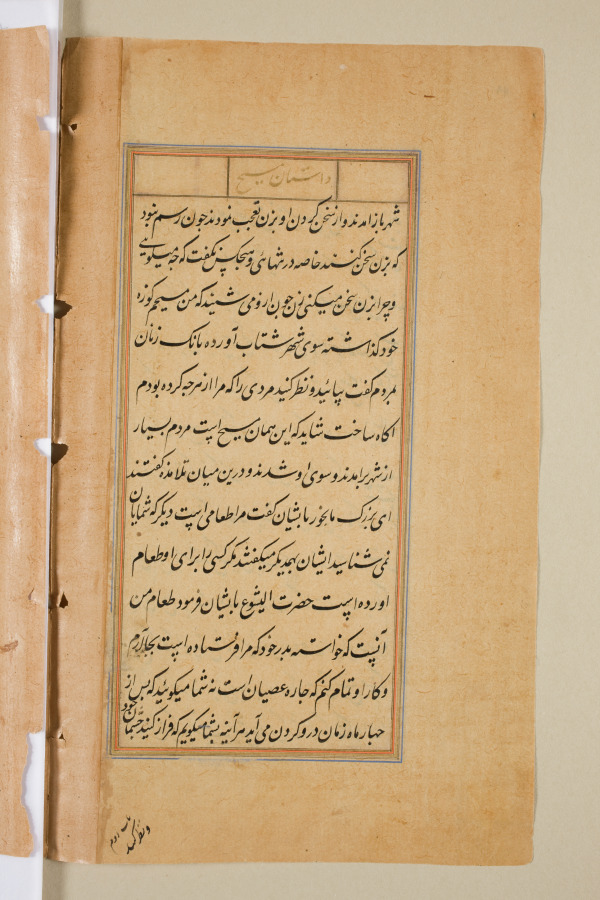 داستان مسیح
شهر باز آمدند و از سخن کردن او بزن تعجب نمودند چون رسم نبود
که بزن سخن کنند خاصه در تنهائی و هیچکس نگفت که چه میگوئی
و چرا بزن سخن میکنی زن چون ازو می شنید که من مسیحم کوزه
خود گذاشته سوی شهر شتاب آورده بانک زنان
بمردم گفت بیائید و نظر کنید مردی را که مرا از هرچه کرده بودم
اکاه ساخت شاید که این همان مسیح است مردم بسیار
از شهر برامدند و سوی او شدند و درین میان تلامذه گفتند
ای بزرک ما بخور بایشان گفت مرا طعامی است دیگر که شمایان
نمی شناسید ایشان بهمدیگر میگفتند مگر کسی را برای او طعام
اورده است حضرت الیشوع بایشان فرمود طعام من
آنست که خواسته پدر خود که مرا فرستاده است بجا آرم
و کار او تمام کنم که چاره عصیان است نه شما میگوئید که پس از
چهار ماه زمان درو کردن می آید هر آئینه بشما میگویم که فراز کنید چشمان خود
و نظر کنید